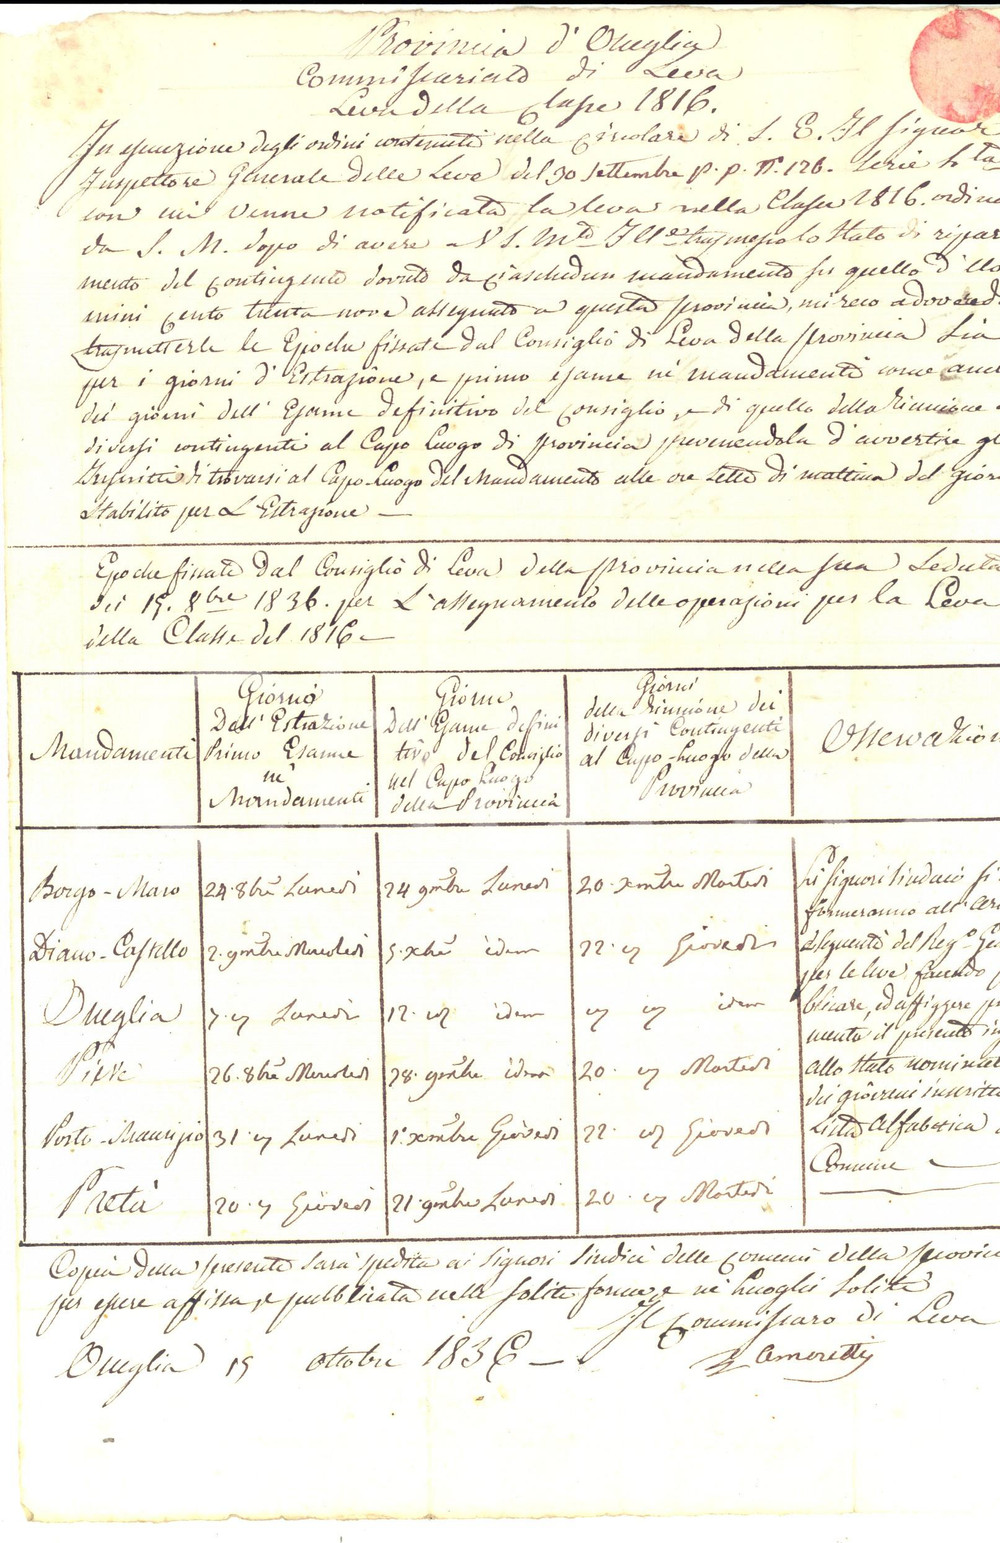 Provincia d'Oneglia
Commissariato di Leva
Leva della Classe 1816.
In esecuzione degli ordini contenuti nella Circolare di S. E. Il Signor
Inspettore Generale delle Leve del 30 Settembre p. p. N.° 126. Serie
con cui venne notificata la leva nella Classe 1816. ordin
da S. M. dopo di avere trasmesso lo Stato di ripar
mento del contingente dovuto da ciaschedun mandamento su quello d'Uo
mini cento trenta nove assegnato a questa provincia, mi reco a dovere di
trasmetterle le Epoche fissate dal Consiglio di Leva della provincia Sia
per i giorni d'Estrazione, e primo esame né mandamenti come anc
dei giorni dell'Esame definitivo del Consiglio, e di quella della Riunione
diversi contingenti al Capo Luogo di provincia prevenendola d'avvertire gl
Inscritti di trovarsi al Capo-Luogo del Mandamento alle ore sette di mattina del gior
Stabilito per L'Estrazione —
Epoche fissate dal Consiglio di Leva della provincia nella sua Seduta
dei 15. 8bre 1836. per L'assegnamento delle operazioni per la Leva
della Classe del 1816 —
Mandamenti
Giorno
Dell'Estrazione
Primo Esame
né
Mandamenti
Giorni
Dell'Esame defini
tivo del Consiglio
nel Capo Luogo
della Provincia
Giorni
della riunione dei
diversi Contingenti
al Capo-Luogo della
Provincia
Osservazion
Borgo-Maro 24. 8bre Lunedi 24 9mbre Lunedi 20. xmbre Martedi
Diano-Castello 2. 9mbre Mercoledi 5. xbre idem 22. " Giovedi
Oneglia 7. " Lunedi 12. " idem " " idem
Pieve 26. 8bre Mercoledi 28. 9mbre idem 20. " Martedi
Porto-Maurizio 31. " Lunedi 1° xmbre Giovedi 22. " Giovedi
Prelà 20. " Giovedi 21. 9mbre Lunedi 20. " Martedi
Li Signori Sindaci si
formeranno all'Ar
del Reg.°
per le leve facendo p
blicare, ed affiggere
mente il presente in
allo Stato nominat
dei giovani inscritti
Lista Alfabetica
Comune —
Copia della presente sarà spedita ai Signori Sindici delle Comuni della provin
per essere affissa, e pubblicata nelle solite forme e né Luoghi soliti
Il Commissaro di Leva
Oneglia 15 Ottobre 1836 —
Amoretti